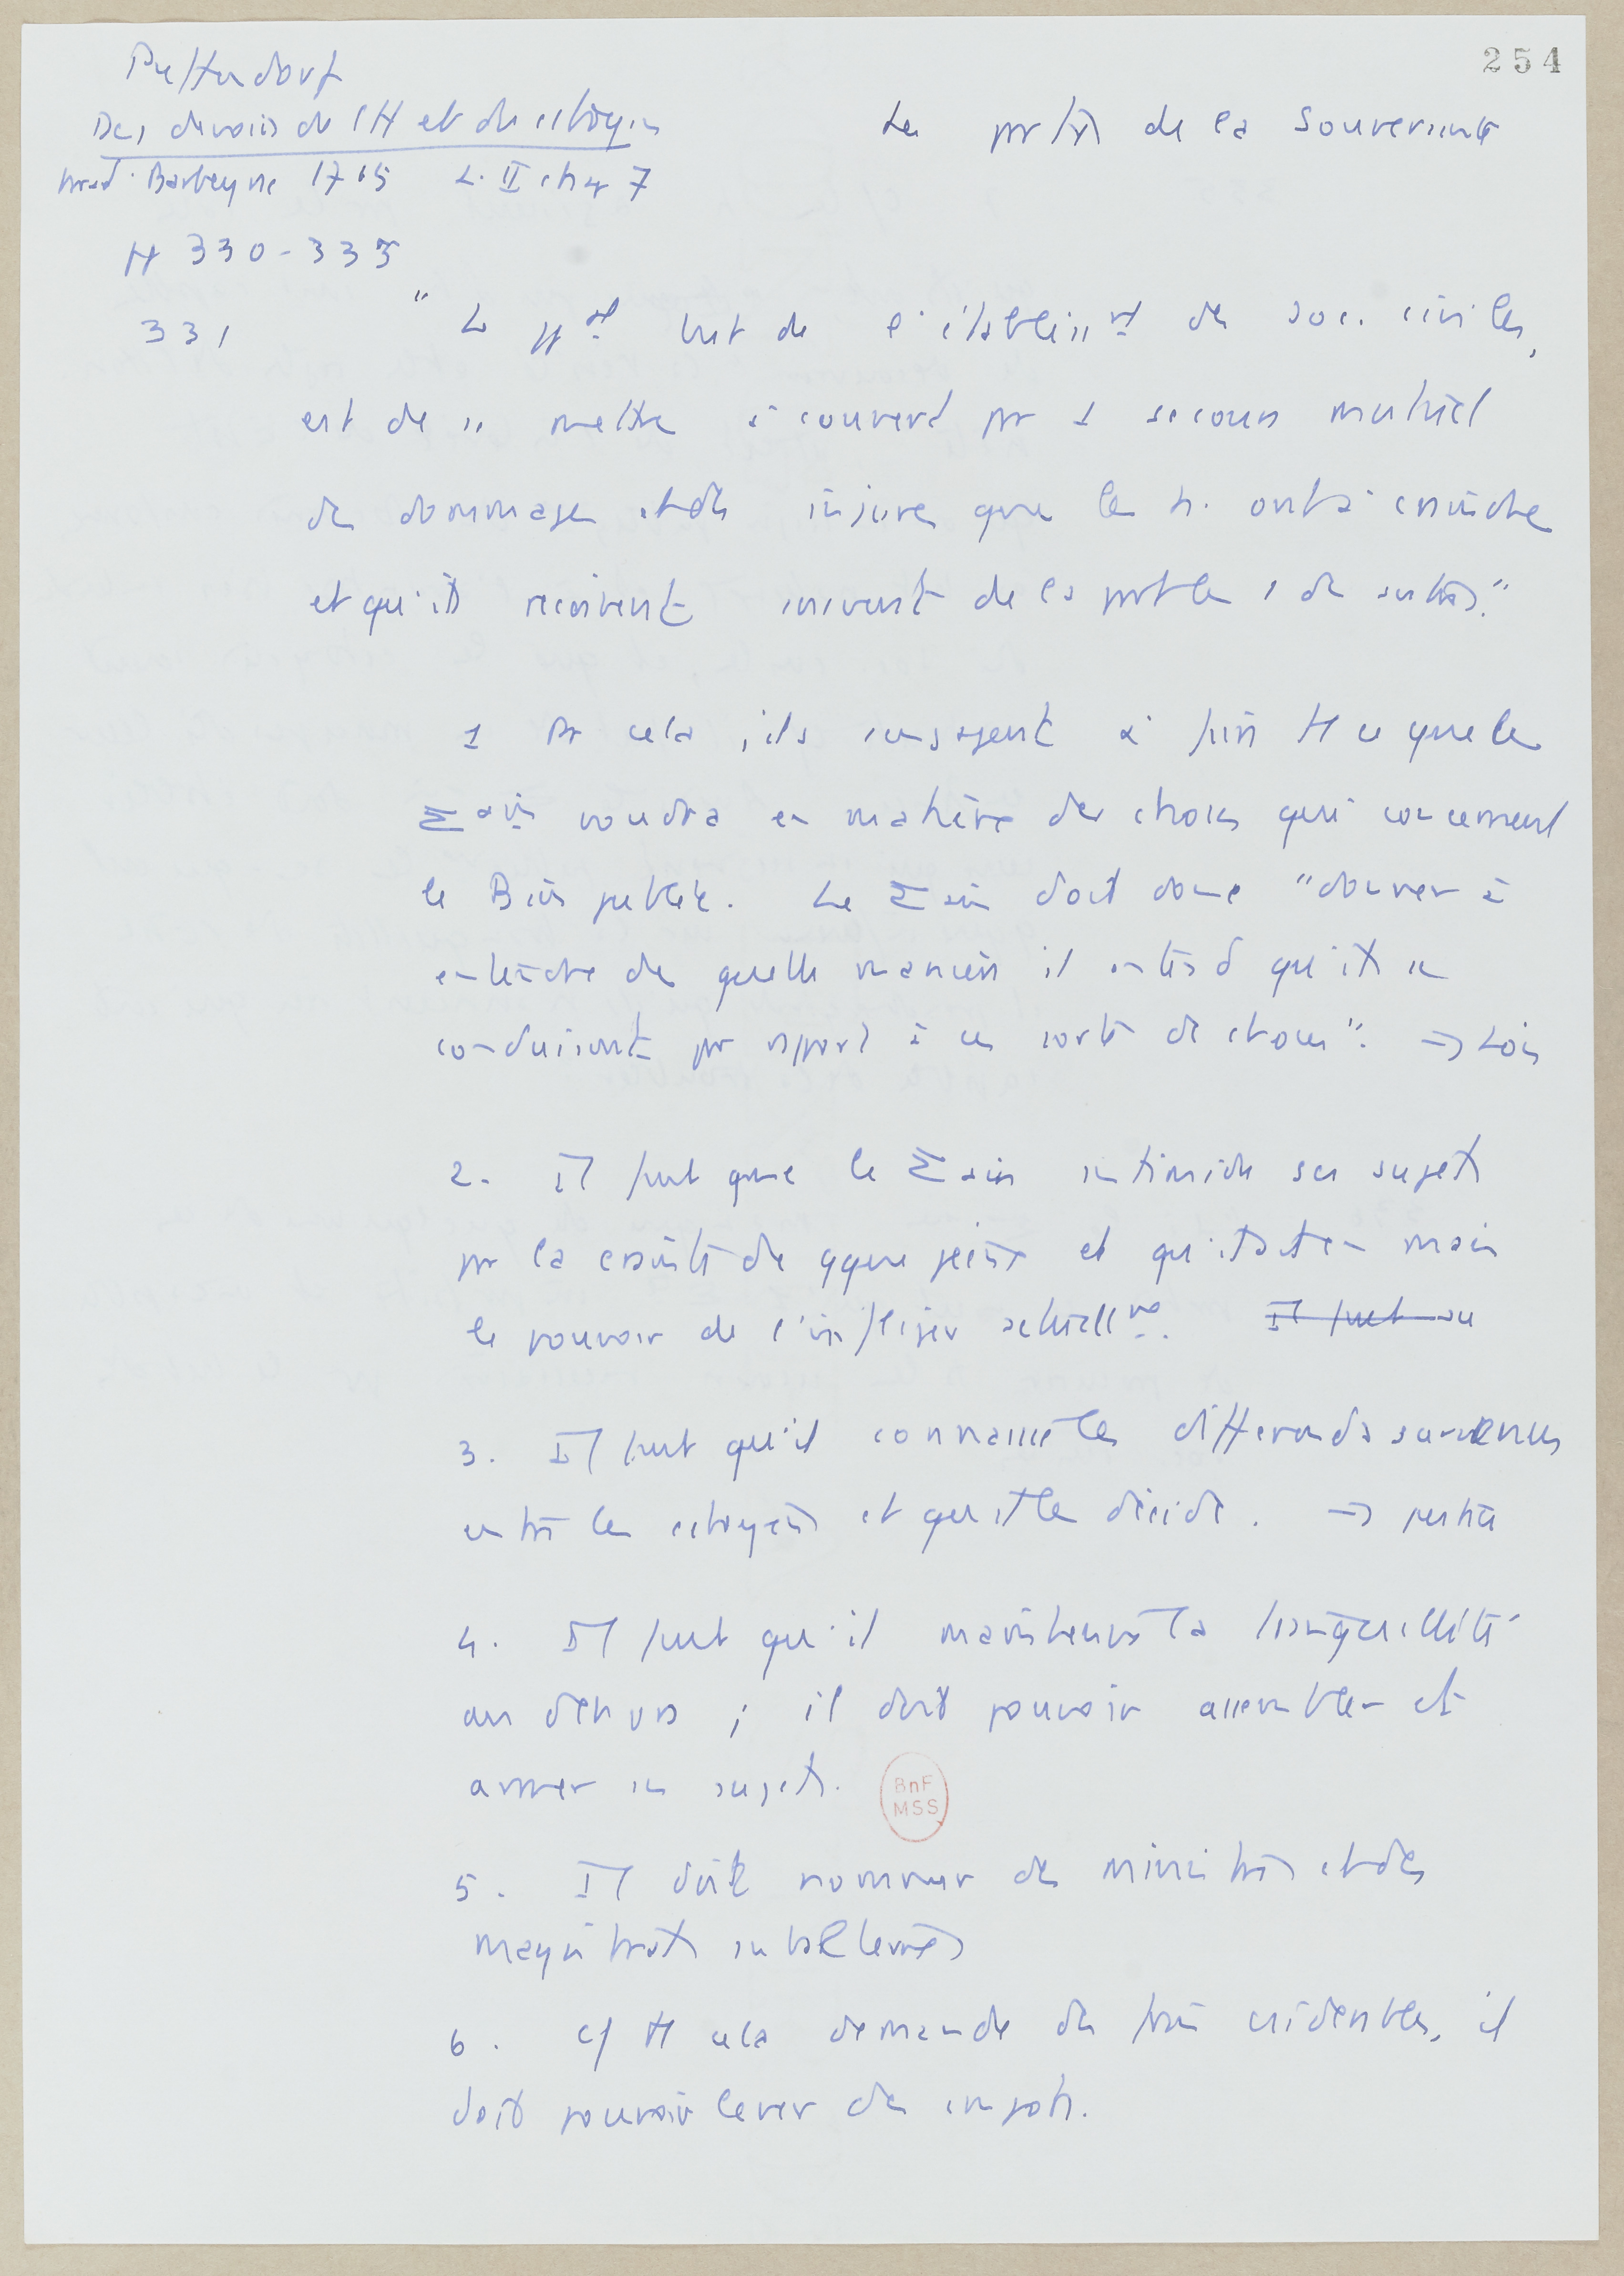 254
Puffendorf
Des devoirs de l'H et du citoyen
trad. Barbeyrac 1715 L. II chap 7
Les parties de la Souveraineté
H 330-335
331 "Le ppal but de l'établisst des soc. civiles,
est de se mettre à couvert par 1 secours mutuel
des dommages et des injures que les h. ont à craindre
et qu'ils reçoivent souvent de la part les 1 des autres."
1 Pr cela, ils s'engagent à faire tt ce que le
Σain voudra en matière des choses qui concernent
le Bien public. Le Σain doit donc "donner à
entendre de quelle manière il entend qu'ils se
conduisent par rapport à ces sortes de choses". → Lois
2. Il faut que le Σain intimide ses sujets
par la crainte de qque peine et qu'il ait en main
le pouvoir de l'infliger actuellmt. Il faut au
3. Il faut qu'il connaisse les différends survenus
entre les citoyens et qu'il les décide. → justice
4. Il faut qu'il maintienne la tranquillité
au dehors ; il doit pouvoir assembler et
armer ses sujets.
BnF
MSS
5. Il doit nommer des ministres et des
magistrats subalternes
6. Cf tt cela demande des frais considérables, il
doit pouvoir lever des impots.